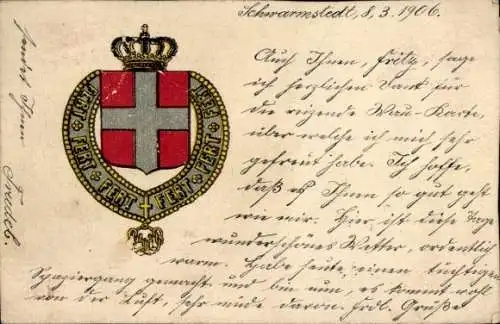 Schwarmstedt, 8.3.1906.
Auch Ihnen, Fritz, sage
ich herzlichen Dank für
die reizende Wau-Karte,
über welche ich mich sehr
gefreut habe. Ich hoffe,
daß es Ihnen so gut geht
wie mir. Hier ist diese Tage
wunderschönes Wetter, ordentlich
warm. Habe heute einen tüchtigen
Spaziergang gemacht und bin nun, es kommt wohl
von der Luft, sehr müde davon. Frdl. Grüße
sendet Ihnen
FERT FERT FERT FERT